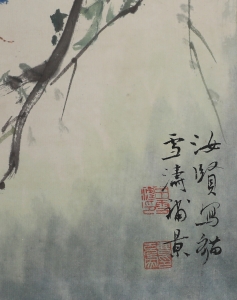 汝賢寫貓
雪濤補景